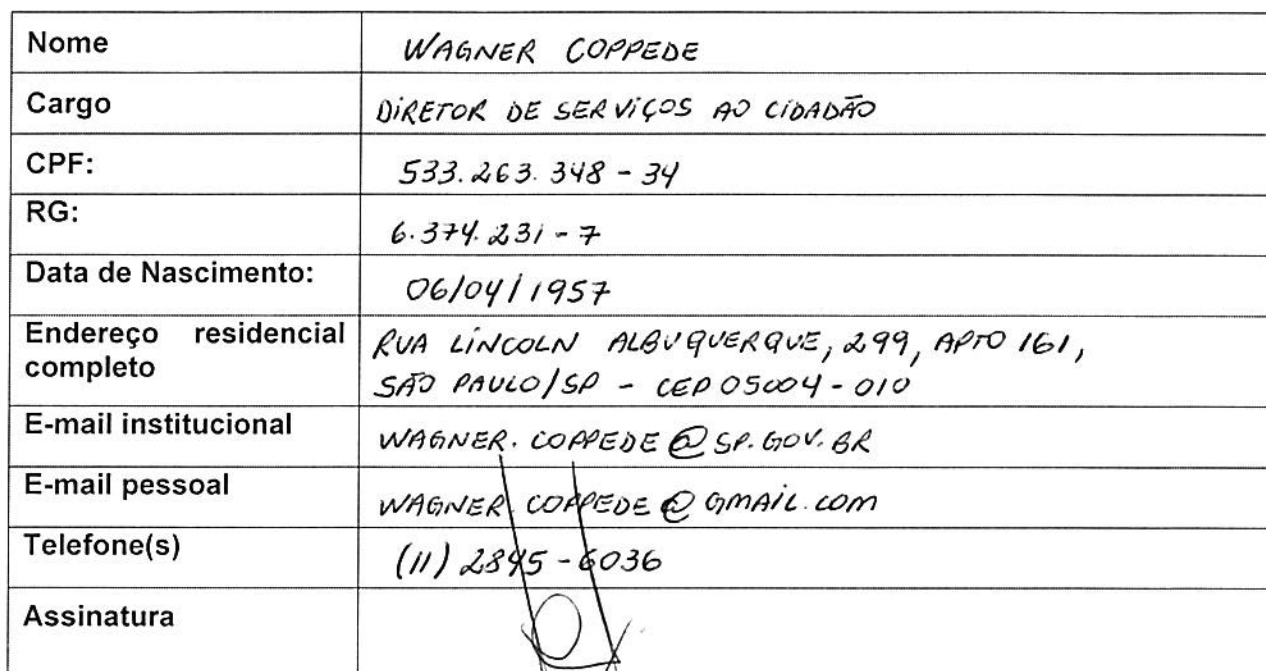 Nome WAGNER COPPEDE
Cargo DIRETOR DE SERVIÇOS AO CIDADÃO
CPF: 533.263.348-34
RG: 6.374.231-7
Data de Nascimento: 06/04/1957
Endereço residencial completo RUA LINCOLN ALBUQUERQUE, 299, APTO 161,
SÃO PAULO/SP - CEP 05004-010
E-mail institucional WAGNER.COPPEDE@SP.GOV.BR
E-mail pessoal WAGNER.COPPEDE@GMAIL.COM
Telefone(s) (11) 2845-6036
Assinatura